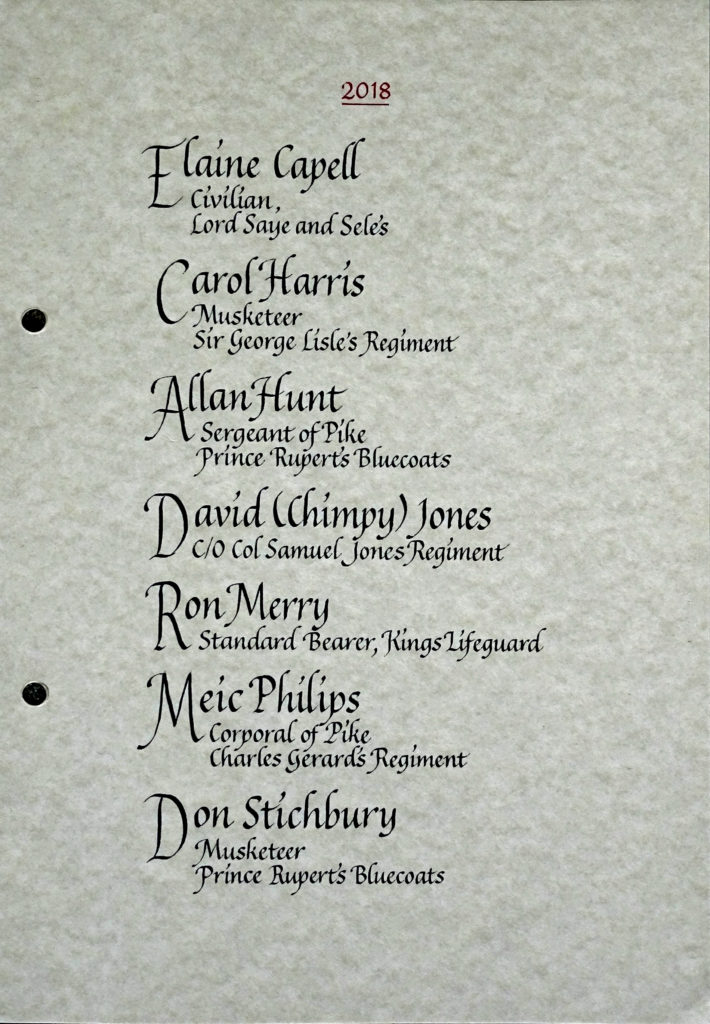 2018
Elaine Capell
Civilian,
Lord Saye and Sele's
Carol Harris
Musketeer
Sir George Lisle's Regiment
Allan Hunt
Sergeant of Pike
Prince Rupert's Bluecoats
David (Chimpy) Jones
C/O Col Samuel Jones Regiment
Ron Merry
Standard Bearer, Kings Lifeguard
Meic Philips
Corporal of Pike
Charles Gerard's Regiment
Don Stichbury
Musketeer
Prince Rupert's Bluecoats